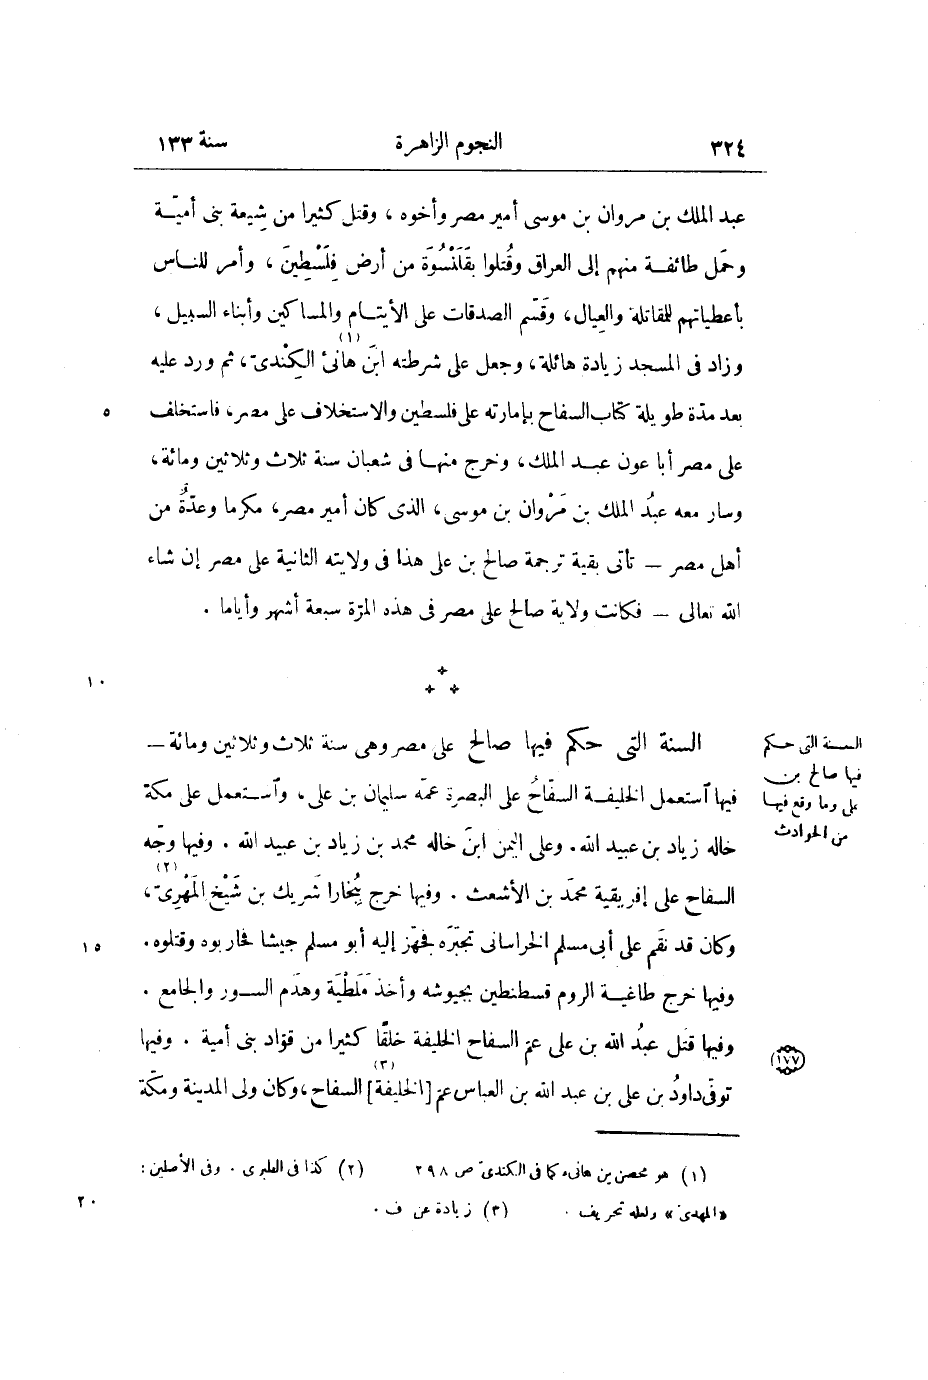 ٣٢٤ النجوم الزاهرة سنة ١٣٣
عبد الملك بن مروان بن موسى أمير مصر وأخوه ، وقتل كثيرا من شِيعة بنى أميّة
وحمَل طائفة منهم إلى العراق وقُتلوا بقَلَنْسُوَة من أرض فِلَسْطِينَ ، وأمر للناس
بأعطياتهم للمقاتلة والعِيال، وقَسّم الصدقات على الأيتام والمساكين وأبناء السبيل ،
وزاد فى المسجد زيادة هائلة، وجعل على شرطته ابنَ هانئ الكِنْدىّ (١)، ثم ورد عليه
بعد مدّة طويلة كتاب السفاح بإمارته على فلسطين والاستخلاف على مصر، فاستخلف ٥
على مصر أبا عون عبد الملك، وخرج منها فى شعبان سنة ثلاث وثلاثين ومائة،
وسار معه عبدُ الملك بن مَرْوان بن موسى، الذى كان أمير مصر، مكرما وعدّةٌ من
أهل مصر — تأتى بقية ترجمة صالح بن على هذا فى ولايته الثانية على مصر إن شاء
الله تعالى — فكانت ولاية صالح على مصر فى هذه المرّة سبعة أشهر وأياما .
١٠
السنة التى حكم فيها صالح على مصر وهى سنة ثلاث وثلاثين ومائة —
السنة التى حكم
فيها صالح بن
على وما وقع فيها
من الحوادث
فيها ٱستعمل الخليفة السفّاحُ على البصرة عمّه سليمان بن على، وٱستعمل على مكة
خاله زياد بن عبيد الله. وعلى اليمن ابنَ خاله محمد بن زياد بن عبيد الله . وفيها وجّه
السفاح على إفريقية محمّد بن الأشعث . وفيها خرج ببُخارا شَريك بن شَيْخ المَهْرِىّ (٢)،
وكان قد نقَم على أبى مسلم الخراسانى تجبّره فجهّز إليه أبو مسلم جيشا فحاربوه وقتلوه. ١٥
وفيها خرج طاغية الروم قسطنطين بجيوشه وأخذ مَلَطْيَة وهدَم السور والجامع .
وفيها قتَل عبدُ الله بن على عم السفاح الخليفة خلقًا كثيرا من قوّاد بنى أمية . وفيها
١٧٧
توفّى داودُ بن على بن عبد الله بن العباس عم [الخليفة] (٣) السفاح، وكان ولى المدينة ومكّة
(١) هو محصن بن هانىء كما فى الكندىّ ص ٢٩٨ (٢) كذا فى الطبرى . وفى الأصلين :
«المهدى» ولعله تحريف . (٣) زيادة عن ف . ٢٠